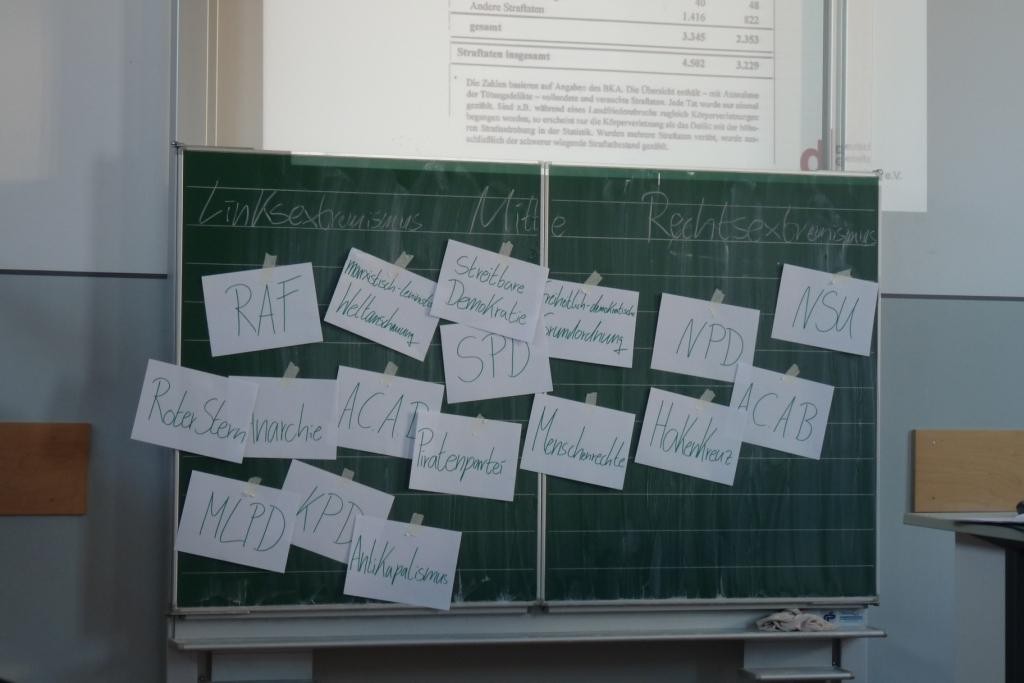 40 48
Andere Straftaten 1.416 822
gesamt 3.345 2.353
Straftaten insgesamt 4.502 3.229
* Die Zahlen basieren auf Angaben des BKA. Die Übersicht enthält – mit Ausnahme
der Tötungsdelikte – vollendete und versuchte Straftaten. Jede Tat wurde nur einmal
gezählt. Sind z.B. während eines Landfriedensbruchs zugleich Körperverletzungen
begangen worden, so erscheint nur die Körperverletzung als das Delikt mit der höhe-
ren Strafandrohung in der Statistik. Wurden mehrere Straftaten verübt, wurde aus-
schließlich der schwerer wiegende Straftatbestand gezählt.
d
e.V.
Linksextremismus Mitte Rechtsextremismus
RAF
marxistisch-leninist
Weltanschauung
Streitbare
Demokratie
freiheitlich-demokratische
Grundordnung
NPD
NSU
SPD
Roter Stern
Anarchie
ACAB
Piratenpartei
Menschenrechte
Hakenkreuz
ACAB
MLPD
KPD
AntiKapalismus